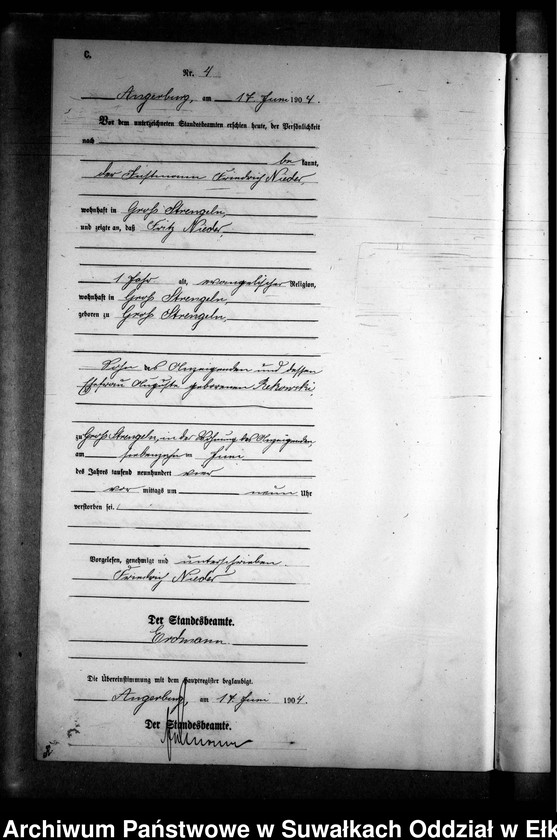 C.
Nr. 4
Angerburg, am 17 Juni 1904.
Vor dem unterzeichneten Standesbeamten erschien heute, der Persönlichkeit
nach
be kannt,
der Instmann Friedrich Nieder,
wohnhaft in Groß Strengeln,
und zeigte an, daß Fritz Nieder,
1 Jahr alt, evangelischer Religion,
wohnhaft in Groß Strengeln,
geboren zu Groß Strengeln,
Sohn des Anzeigenden und dessen
Ehefrau Auguste geborenen Rekowski,
zu Groß Strengeln, in der Wohnung des Anzeigenden,
am siebenzehn ten Juni
des Jahres tausend neunhundert vier
vor mittags um neun Uhr
verstorben sei.
Vorgelesen, genehmigt und unterschrieben
Friedrich Nieder
Der Standesbeamte.
Erdmann
Die Übereinstimmung mit dem Hauptregister beglaubigt.
Angerburg, am 17 Juni 1904.
Der Standesbeamte.
Archiwum Państwowe w Suwałkach Oddział w Ełk